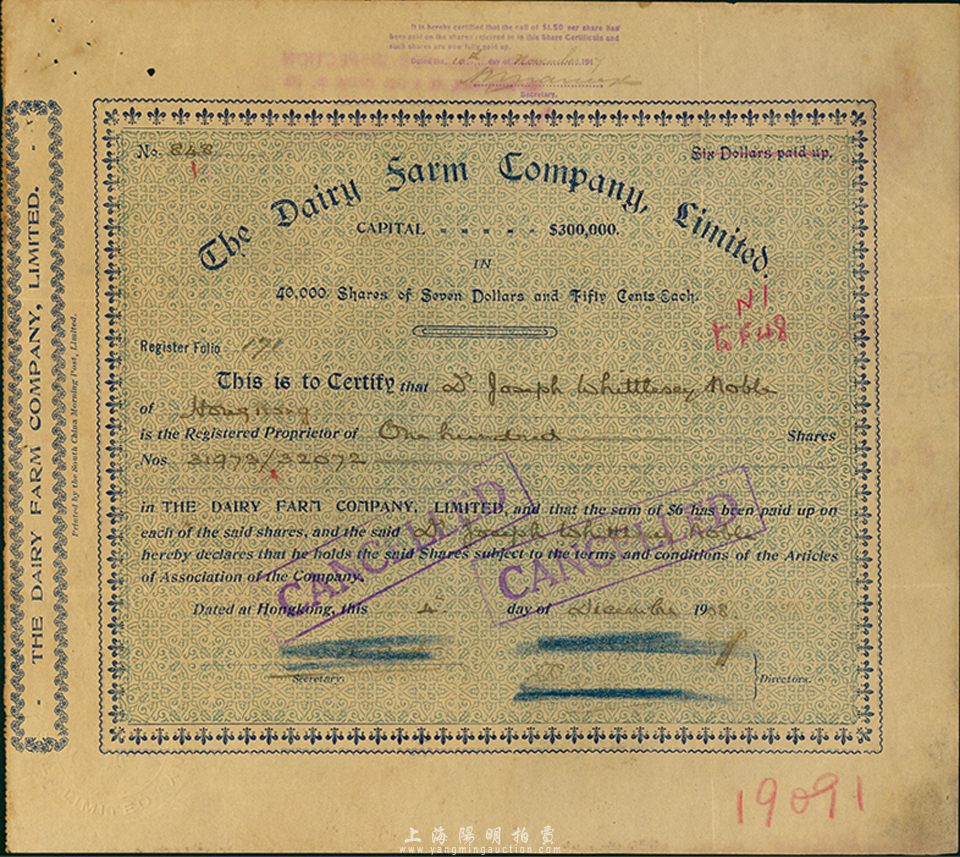 It is hereby certified that the call of $1.50 per share has
been paid on the shares referred to in this Share Certificate and
such shares are now fully paid up.
Dated the 10th day of November 1917
Secretary.
No. 848
Six Dollars paid up.
The Dairy Farm Company, Limited.
CAPITAL - - - - - $300,000.
IN
40,000 Shares of Seven Dollars and Fifty Cents Each.
N 1
to F 48
Register Folio 171
This is to Certify that Dr Joseph Whittlesey Noble
of Hongkong
is the Registered Proprietor of One hundred Shares
Nos 31973/32072
in THE DAIRY FARM COMPANY, LIMITED, and that the sum of $6 has been paid up on
each of the said shares, and the said Dr Joseph Whittlesey Noble
hereby declares that he holds the said Shares subject to the terms and conditions of the Articles
of Association of the Company.
CANCELLED
CANCELLED
Dated at Hongkong, this 4th day of December 1908
Secretary.
Directors.
- THE DAIRY FARM COMPANY, LIMITED. -
Printed by the South China Morning Post, Limited.
LIMITED
19091
上海陽明拍賣
www.yangmingauction.com